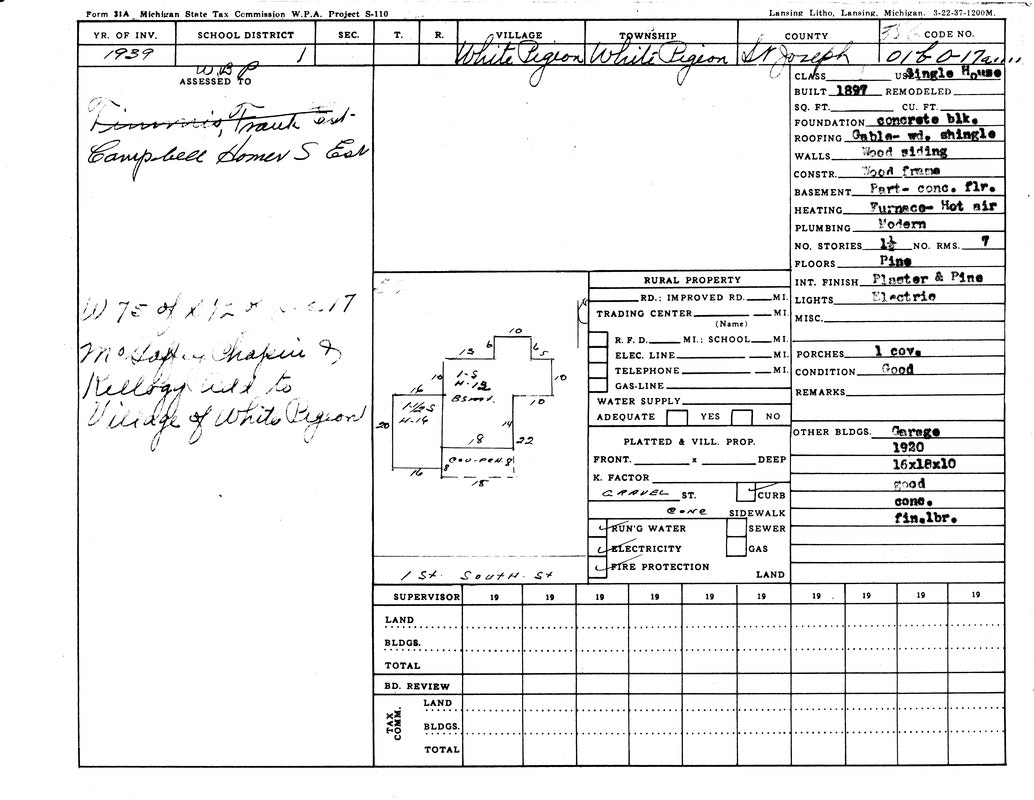 Form 31A Michigan State Tax Commission W.P.A. Project S-110
Lansing Litho, Lansing, Michigan. 3-22-37-1200M.
YR. OF INV. SCHOOL DISTRICT SEC. T. R. VILLAGE TOWNSHIP COUNTY CODE NO.
1939 1 White Pigeon White Pigeon St Joseph
W.B.P
ASSESSED TO
Timmis, Frank Est-
Campbell Homer S Est
W 75 of 17
Chapin &
Kellogg add to
Village of White Pigeon
CLASS USE Single House
BUILT 1897 REMODELED
SQ. FT. CU. FT.
FOUNDATION concrete blk.
ROOFING Gable- wd. shingle
WALLS Wood siding
CONSTR. Wood frame
BASEMENT Part- conc. flr.
HEATING Furnace- Hot air
PLUMBING Modern
NO. STORIES 1½ NO. RMS. 7
FLOORS Pine
INT. FINISH Plaster & Pine
LIGHTS Electric
MISC.
PORCHES 1 cov.
CONDITION Good
REMARKS
OTHER BLDGS. Garage
1920
16x18x10
good
conc.
fin.lbr.
10
13 6 6 5
10 1-S 10
H-12
Bsmt.
16 10
20 1-1/2 S 14
H-16
18 22
8
16 18
1 St. South. St
RURAL PROPERTY
RD.: IMPROVED RD. MI.
TRADING CENTER MI.
(Name)
R. F. D. MI.: SCHOOL MI.
ELEC. LINE MI.
TELEPHONE MI.
GAS-LINE
WATER SUPPLY
ADEQUATE YES NO
PLATTED & VILL. PROP.
FRONT. x DEEP
K. FACTOR
GRAVEL ST. CURB
CONC SIDEWALK
RUN'G WATER SEWER
ELECTRICITY GAS
FIRE PROTECTION
LAND
SUPERVISOR 19 19 19 19 19 19 19 19 19 19
LAND
BLDGS.
TOTAL
BD. REVIEW
TAX COMM.
LAND
BLDGS.
TOTAL